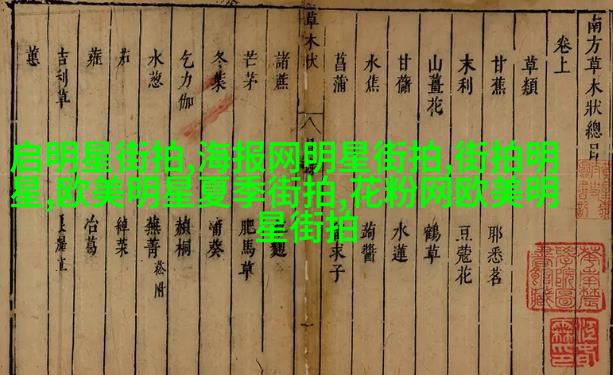 启明星街拍,海报网明星街拍,街拍明
星,欧美明星夏季街拍,花粉网欧美明
星街拍
南方草木狀總目
卷上
草類
甘蕉 耶悉茗
末利 豆蔻花
山薑花 鶴草
甘藷 水蓮
水蕉 蒟醬
菖蒲 求子
草木狀 八
諸蔗 麴
芒茅 肥馬草
冬葉 蒲葵
乞力伽 赬桐
水葱 蕪菁 菘附
茄 綽菜
蕹 冶葛
吉利草
蕙